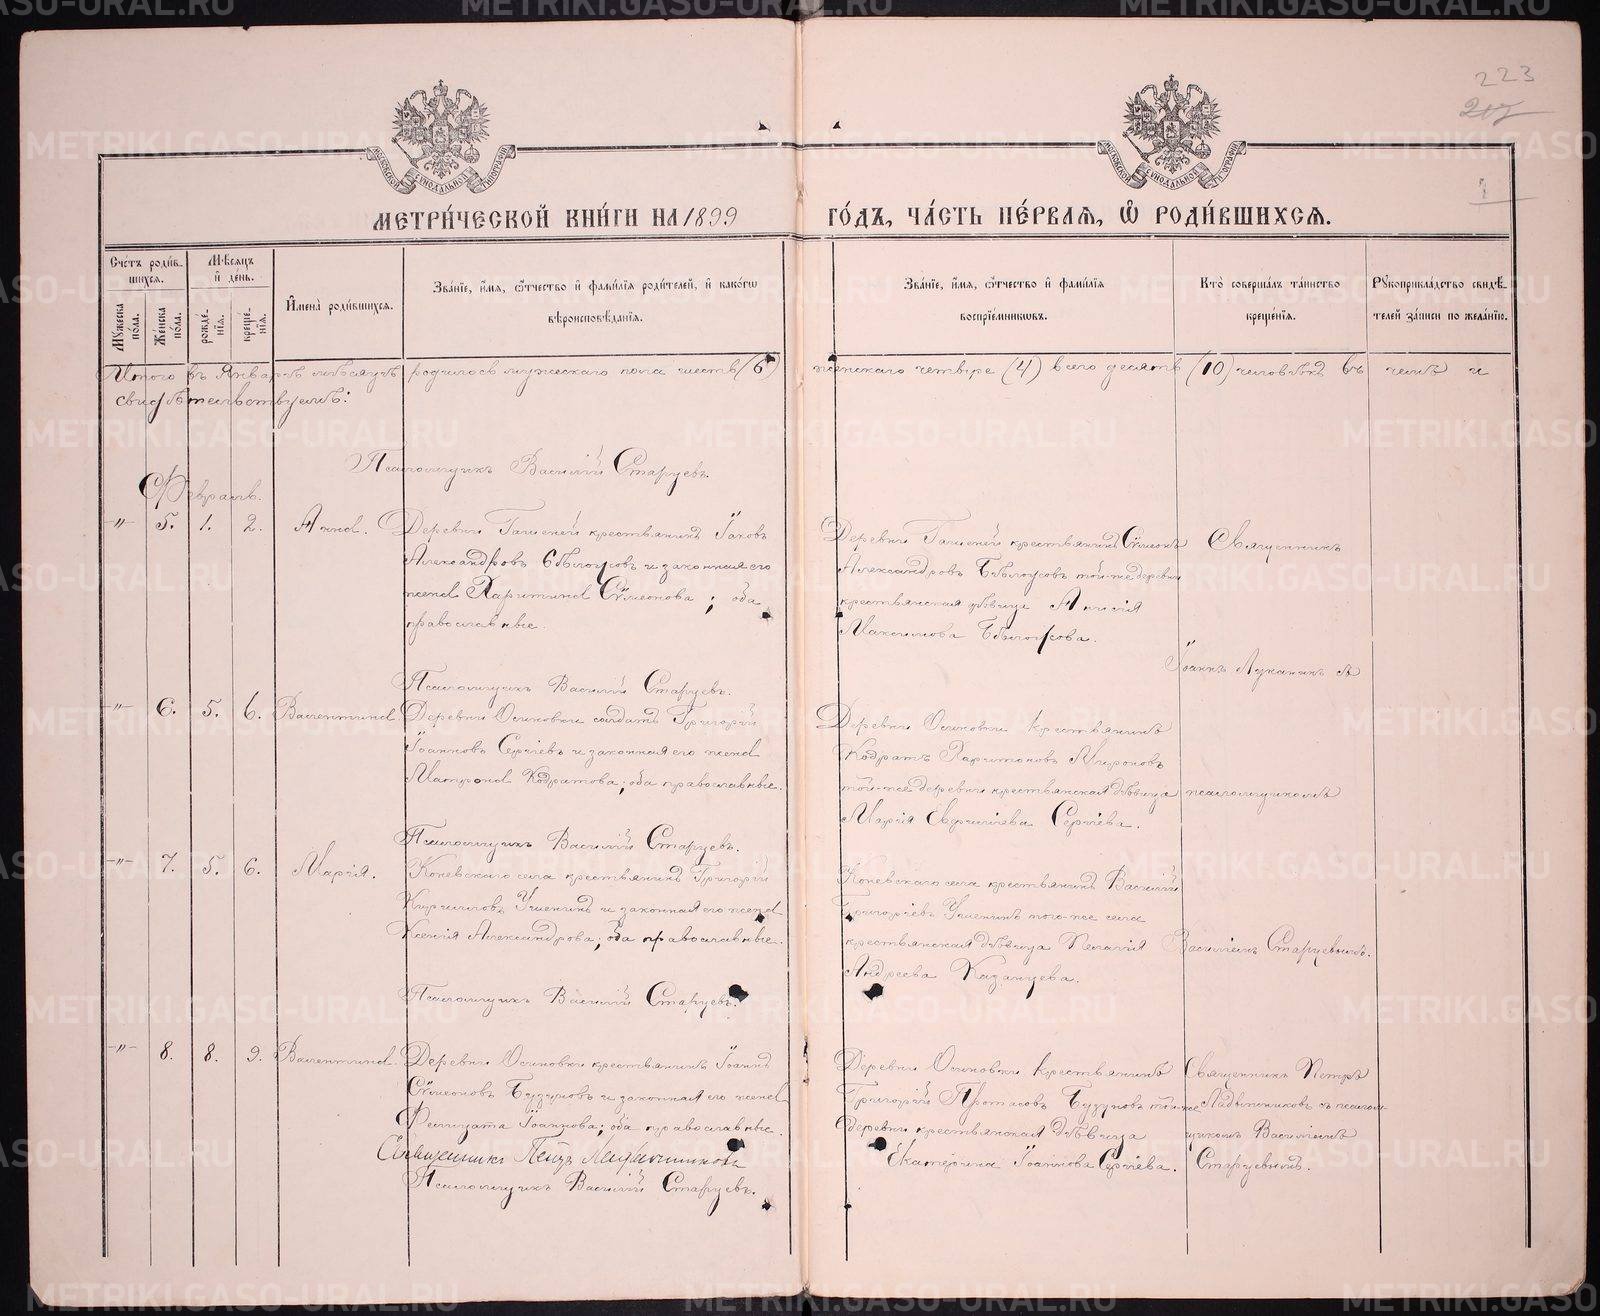 223
217
1
МОСКОВСКОЙ СѴНОДАЛЬНОЙ ТИПОГРАФІИ
МОСКОВСКОЙ СѴНОДАЛЬНОЙ ТИПОГРАФІИ
МЕТРИ́ЧЕСКОЙ КНИ́ГИ НА 1899 ГО́ДЪ, ЧА́СТЬ ПЕ́РВАЯ, Ѡ҆ РОДИ́ВШИХСЯ.
Сче́тъ роди́вшихся.
Му́жеска по́ла.
Же́нска по́ла.
Мѣ́сяцъ и҆ де́нь.
рожде́нїя.
креще́нїя.
И҆мена̀ роди́вшихся.
Зва́нїе, и҆́мя, ѻ҆́тчество и҆ фами́лїя роди́телей, и҆ како́гѡ вѣроисповѣ́данїя.
Зва́нїе, и҆́мя, ѻ҆́тчество и҆ фами́лїя воспрїе́мникѡвъ.
Кто̀ соверша́лъ та́инство креще́нїя.
Рꙋкоприкла́дство свидѣ́телей за́писи по жела́нїю.
Итого въ Январѣ мѣсяцѣ родилось мужескаго пола шесть (6) женскаго четыре (4) всего десять (10) человѣкъ въ чемъ и
свидѣтельствуемъ:
Псаломщикъ Василій Старцевъ.
Февраль.
-"- 5. 1. 2. Анна.
Деревни Гашеней крестьянинъ Іаковъ
Александровъ Бѣлоусовъ и законная его
жена Харитина Сѵмеонова; оба
православные.
Деревни Гашеней крестьянинъ Сѵмеонъ
Александровъ Бѣлоусовъ той-же деревни
крестьянская дѣвица Анисія
Максимова Бѣлоусова.
Священникъ
Іоаннъ Луканинъ съ
Псаломщикъ Василій Старцевъ.
-"- 6. 5. 6. Валентина
Деревни Осиновки солдатъ Григорій
Іоанновъ Сергіевъ и законная его жена
Матрона Кодратова; оба православные.
Деревни Осиновки крестьянинъ
Кодратъ Харитоновъ Мироновъ
той-же деревни крестьянская дѣвица
Марія Сергіева.
псаломщикомъ
Псаломщикъ Василій Старцевъ.
-"- 7. 5. 6. Марія.
Коневскаго села крестьянинъ Григорій
Кирилловъ Ушенинъ и законная его жена
Ксенія Александрова; оба православные.
Коневскаго села крестьянинъ Василій
Григоріевъ Ушенинъ того-же села
крестьянская дѣвица Пелагія
Андреева Казанцева.
Василіемъ Старцевымъ.
Псаломщикъ Василій Старцевъ.
-"- 8. 8. 9. Валентина.
Деревни Осиновки крестьянинъ Іоаннъ
Сѵмеоновъ Бузуновъ и законная его жена
Фелицата Іоаннова; оба православные.
Деревни Осиновки крестьянинъ
Григорій Протасовъ Бузуновъ той-же
деревни крестьянская дѣвица
Екатерина Іоаннова Сергіева.
Священникъ Петръ
Ладыжниковъ съ псалом-
щикомъ Василіемъ
Старцевымъ.
Священникъ Петръ Ладыжниковъ
Псаломщикъ Василій Старцевъ.
METRIKI.GASO-URAL.RU